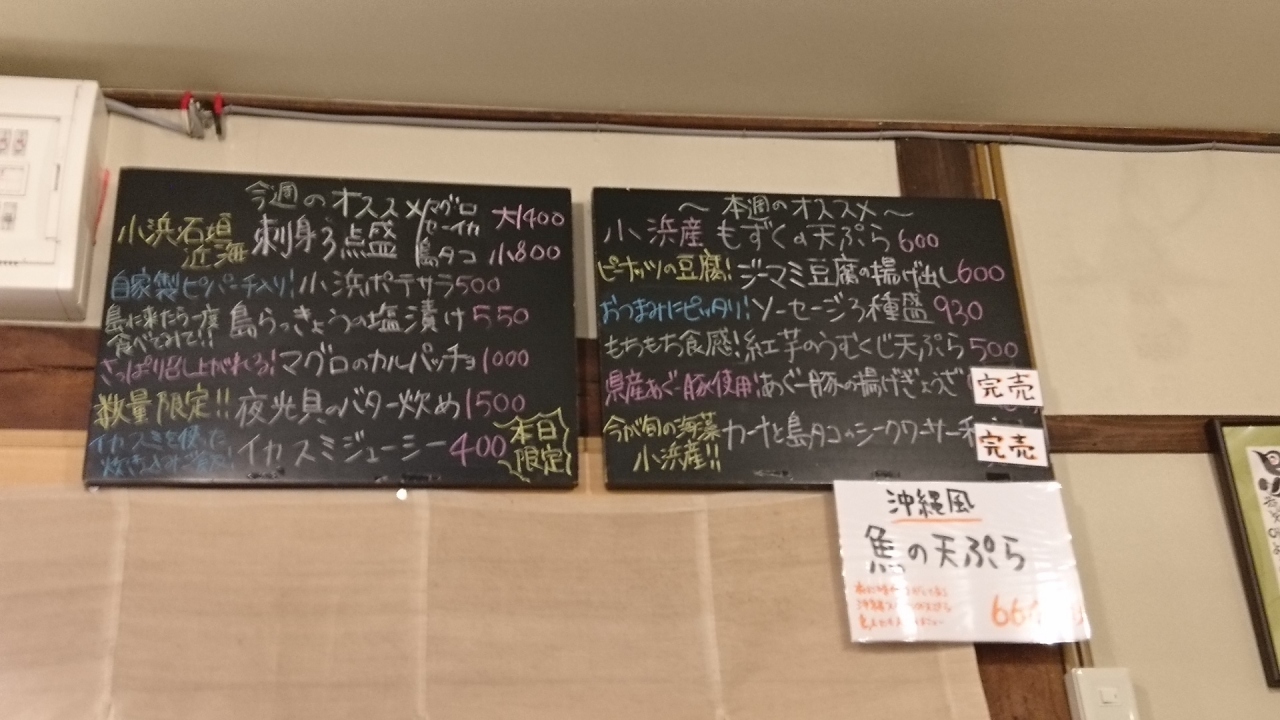 今週のオススメ
小浜石垣近海 刺身3点盛 マグロ セーイカ 島タコ 大1400 小800
自家製ピパーチ入り! 小浜ポテサラ 500
島に来たら一度食べてみて!! 島らっきょうの塩漬け 550
さっぱり召し上がれる! マグロのカルパッチョ 1000
数量限定!! 夜光貝のバター炒め 1500
イカスミを使った イカスミジューシー 400 本日限定
〜 本週のオススメ 〜
小浜産 もずくの天ぷら 600
ピーナッツの豆腐! ジーマミ豆腐の揚げ出し 600
おつまみにピッタリ! ソーセージ3種盛 930
もちもち食感! 紅芋のうむくじ天ぷら 500
県産あぐー豚使用! あぐー豚の揚げぎょうざ 完売
今が旬の海藻 小浜産!! カーナと島タコのシークワーサー和 完売
沖縄風
魚の天ぷら